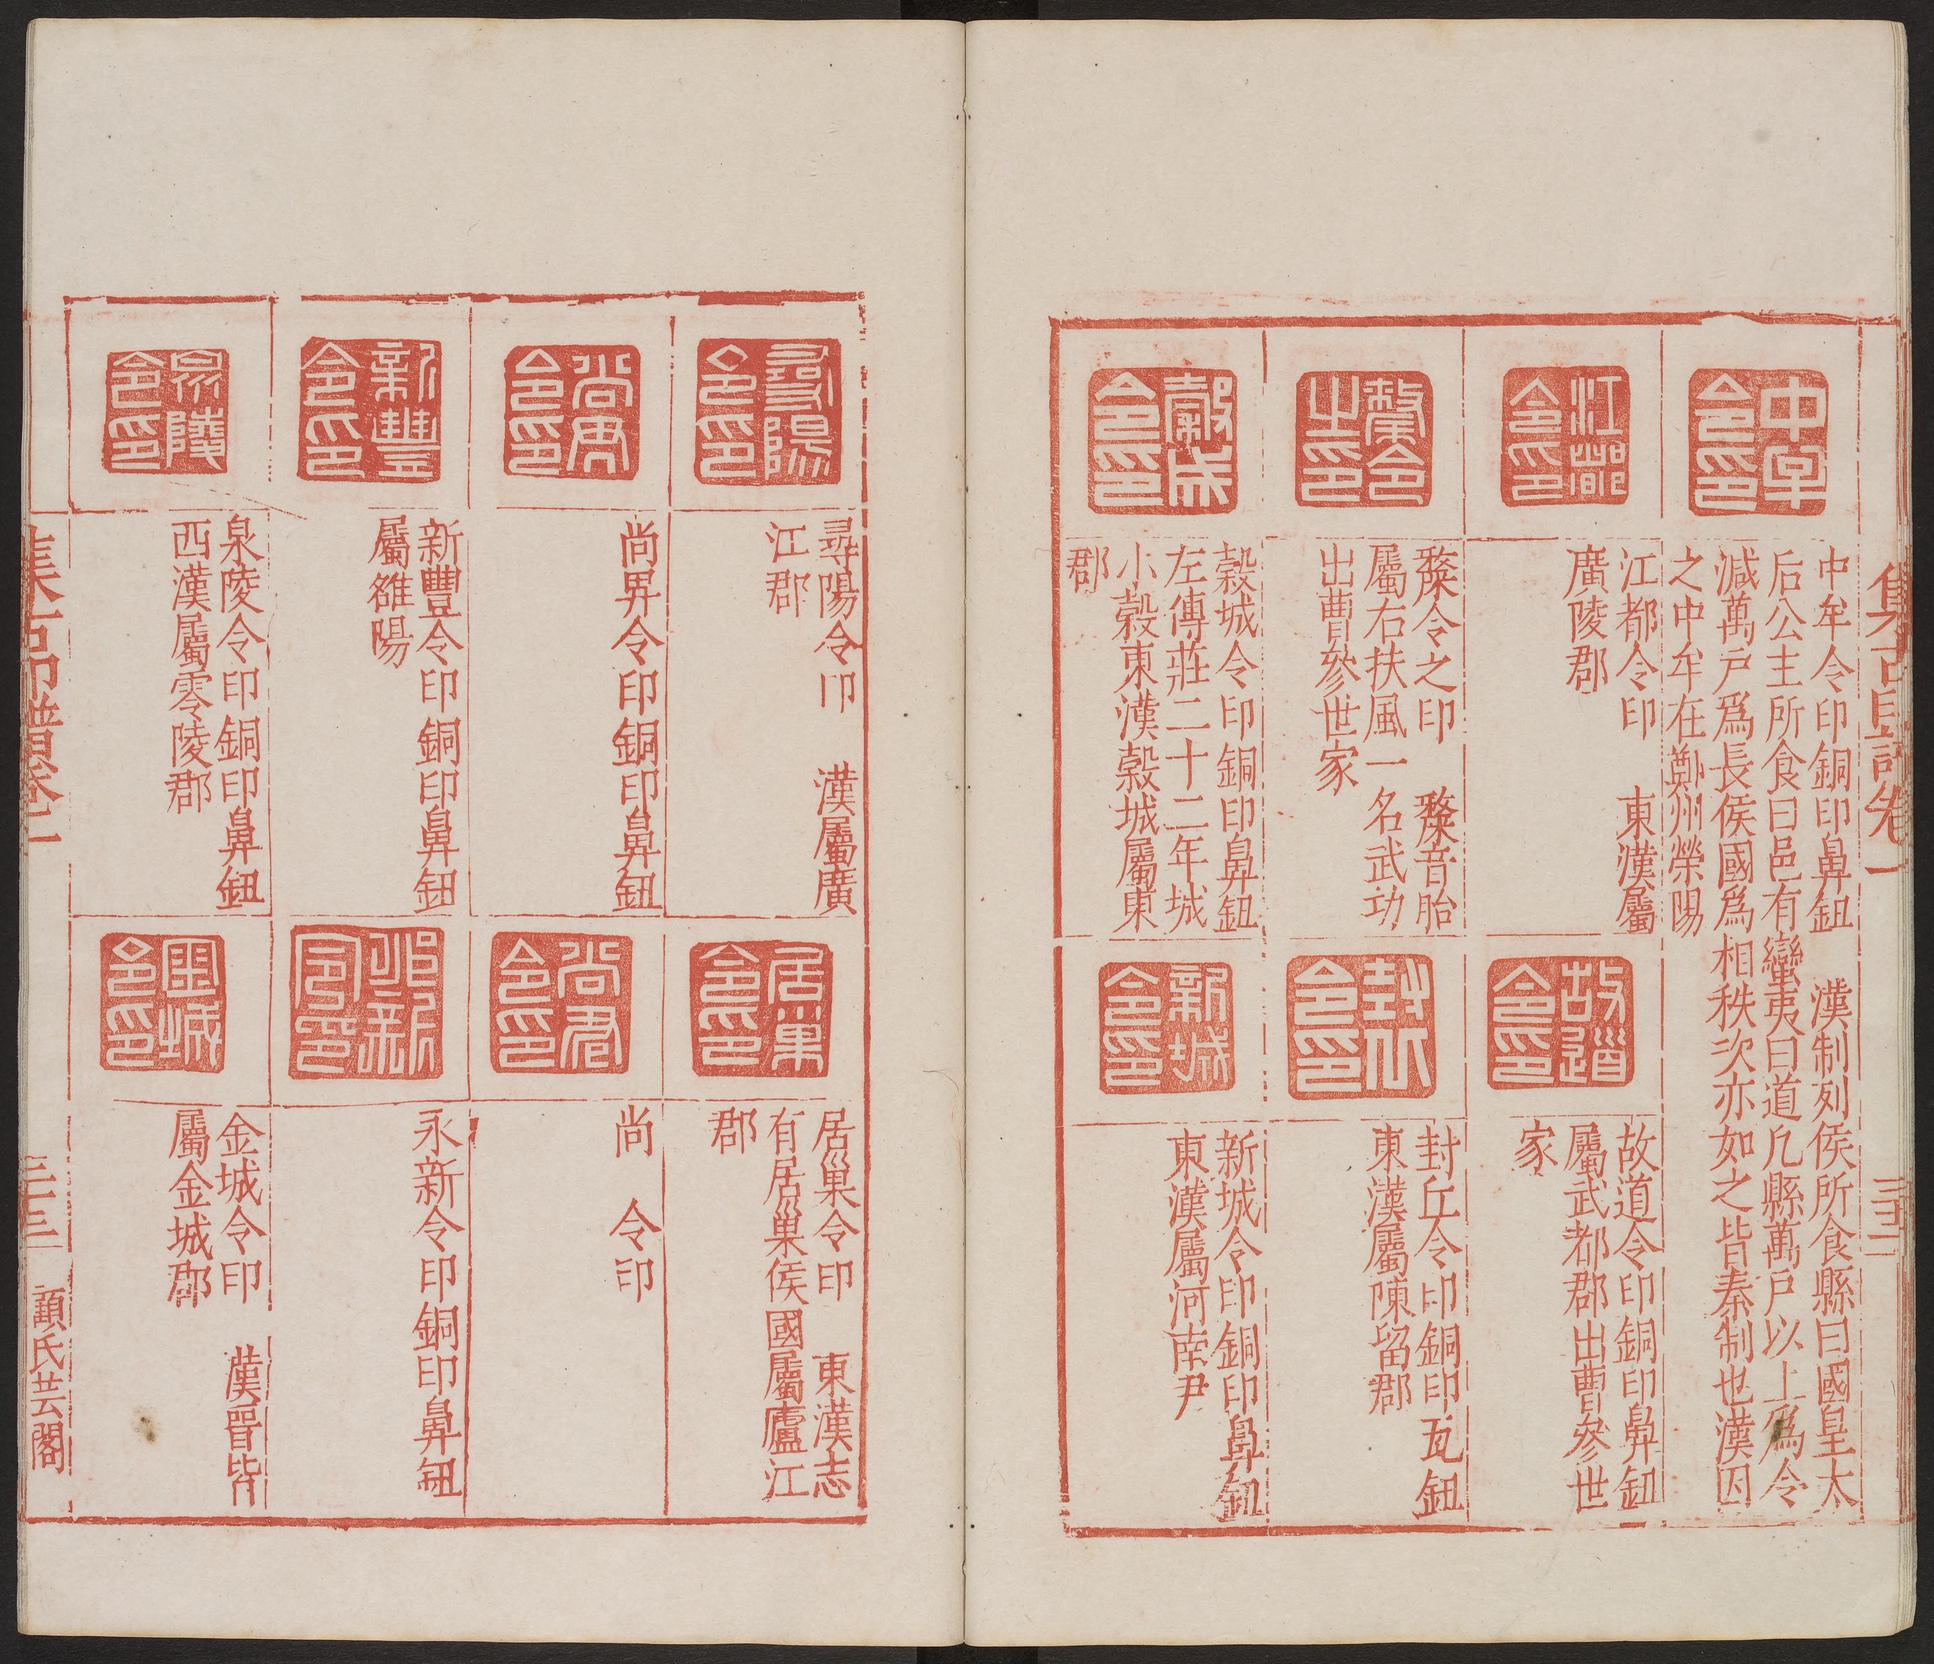 中牟令印
中牟令印銅印鼻鈕 漢制列侯所食縣曰國皇太
后公主所食曰邑有蠻夷曰道凡縣萬戶以上爲令
減萬戶爲長侯國爲相秩次亦如之皆秦制也漢因
之中牟在鄭州滎陽
江都令印
江都令印 東漢屬
廣陵郡
故道令印
故道令印銅印鼻鈕
屬武都郡出曹參世
家
令之印
令之印 音胎
屬右扶風一名武功
出曹參世家
封丘令印
封丘令印銅印瓦鈕
東漢屬陳留郡
穀城令印
穀城令印銅印鼻鈕
左傳莊二十二年城
小穀東漢穀城屬東
郡
新城令印
新城令印銅印鼻鈕
東漢屬河南尹
集古印譜卷一
尋陽令印
尋陽令印 漢屬廣
江郡
居巢令印
居巢令印 東漢志
有居巢侯國屬廬江
郡
尚 令印
尚 令印銅印鼻鈕
尚 令印
尚 令印
新豐令印
新豐令印銅印鼻鈕
屬雒陽
永新令印
永新令印銅印鼻鈕
泉陵令印
泉陵令印銅印鼻鈕
西漢屬零陵郡
金城令印
金城令印 漢晉皆
屬金城郡
集古印譜卷一
三十三
顧氏芸閣